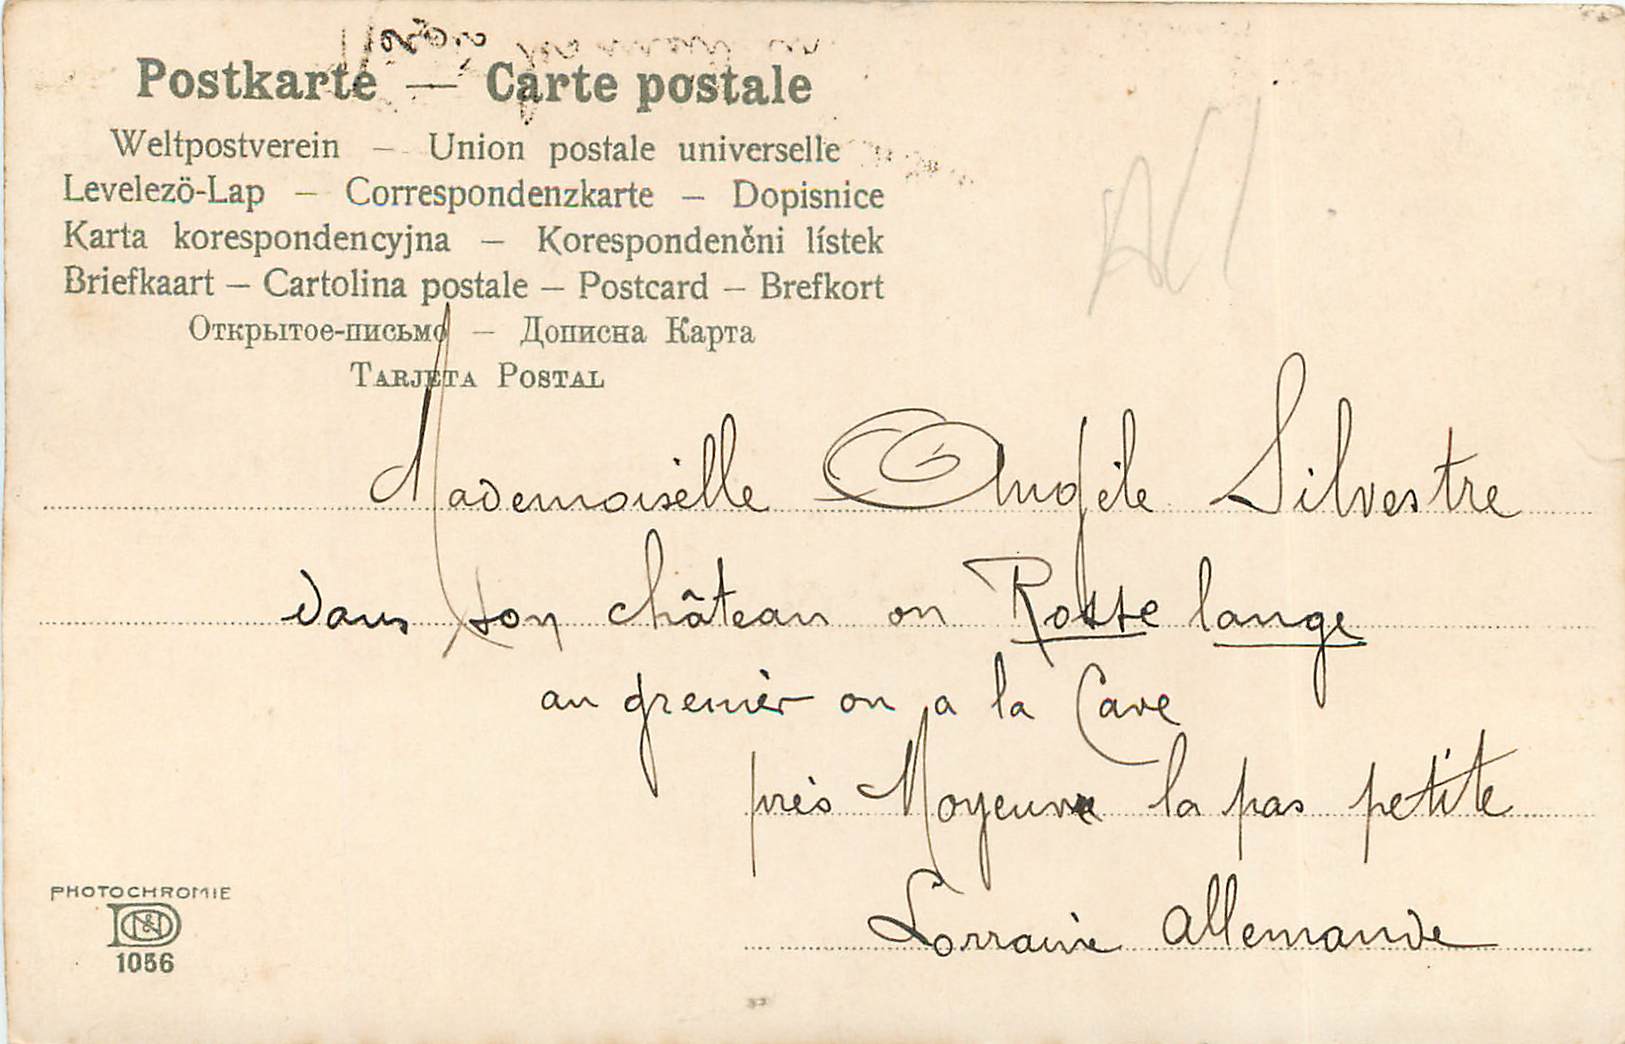 Postkarte — Carte postale
Weltpostverein – Union postale universelle
Levelezö-Lap – Correspondenzkarte – Dopisnice
Karta korespondencyjna – Korespondenčni lístek
Briefkaart – Cartolina postale – Postcard – Brefkort
Открытое-письмо – Дописна Карта
TARJETA POSTAL
Mademoiselle Angèle Silvestre
dans son château ou Rosselange
au grenier ou a la Cave
près Moyeuvre la pas petite
Lorraine Allemande
PHOTOCHROMIE
1056